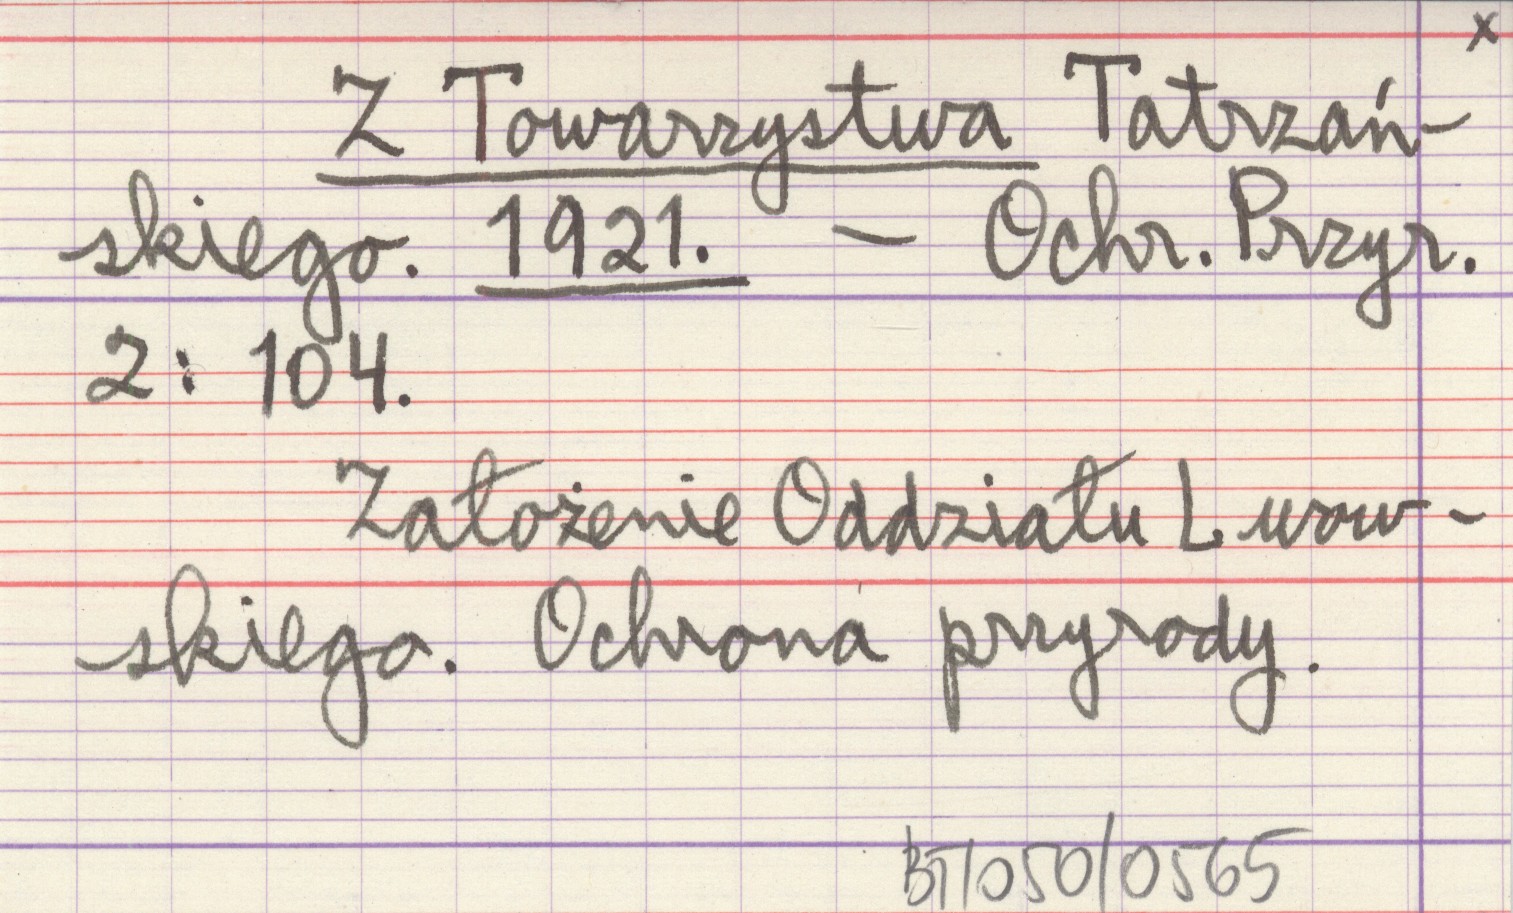 x
Z Towarzystwa Tatrzań-
skiego. 1921. — Ochr. Przyr.
2: 104.
Założenie Oddziału Lwow-
skiego. Ochrona przyrody.
BT/050/0565